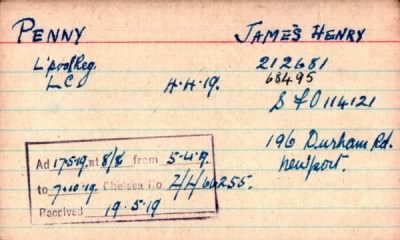 PENNY JAMES HENRY
L'pool Reg. 212681
L.C. 68495
4.4.19.
S/O 114121
196 Durham Rd.
Newport.
Ad 17.5.19. at 8/8 from 5.4.19.
to 7.10.19. Chelsea No Z/H/66255.
Received 19.5.19